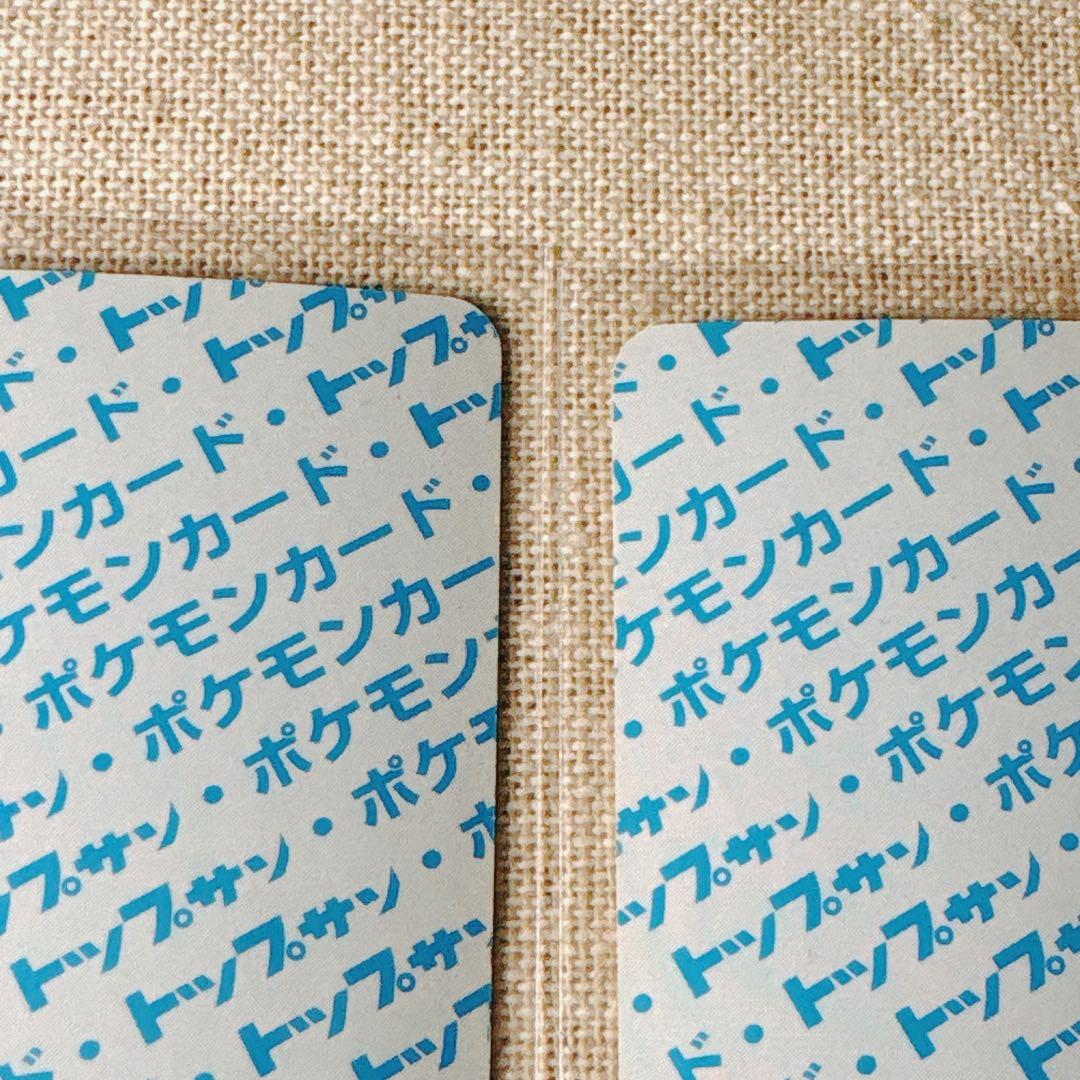 トッ
ド・トッ
カード・トップ
ンカード・トップサ
ケモンカード・トッ
・ポケモンカード・
サン・ポケモンカー
ップサン・ポケモン
トップサン・ポケモ
・トップサン・ポ
ド・トップサン
トップサ
トッ
ド・トッ
ード・トッ
カード・トップ
ンカード・トッ
ケモンカード・
・ポケモンカード
サン・ポケモンカー
プサン・ポケモン
トップサン・ポケ
・トップサン・
ド・トップサン
トッ